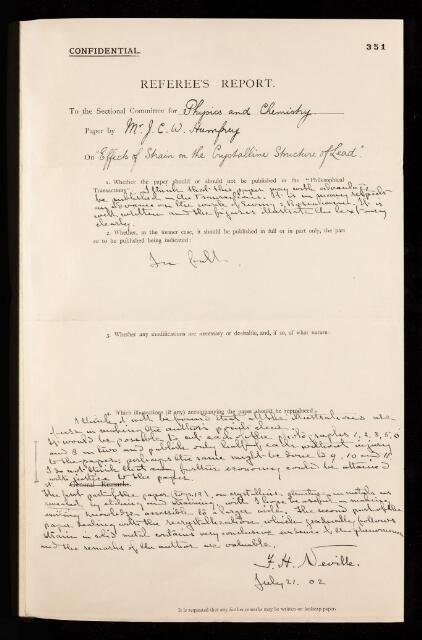 CONFIDENTIAL.
351
REFEREE'S REPORT.
To the Sectional Committee for Physics and Chemistry
Paper by Mr J. C. W. Humfrey
On "Effects of Strain on the Crystalline Structure of Lead".
1. Whether the paper should or should not be published in the "Philosophical
Transactions". I think that this paper may with advantage
be published in the Transactions. It is in many respects
an advance on the work of Ewing & Rosenhain. It is
well written and the figures illustrate the text very
clearly.
2. Whether, in the former case, it should be published in full or in part only, the part
so to be published being indicated:
In full.
3. Whether any modifications are necessary or desirable, and, if so, of what nature:
4. Which illustrations (if any) accompanying the paper should be reproduced:
I think it will be found that all the illustrations are
of use in making the author's points clear.
It would be possible to cut each of the photographs 1, 2, 3, 5, 6
and 8 in two and publish only half of each without injury
to the paper; perhaps the same might be done to 9, 10 and 11
I do not think that any further economy could be attained
with justice to the paper.
General Remarks.
The first part of the paper on crystalline in metals as
revealed by etching and straining will I hope be useful in making
existing knowledge accessible to a larger circle. The second part of the
paper dealing with the recrystallization which gradually follows
strain in solid metal contains very conclusive evidence of the phenomenon
and the remarks of the author are valuable.
F. H. Neville.
July 21. 02
It is requested that any further remarks may be written on foolscap paper.